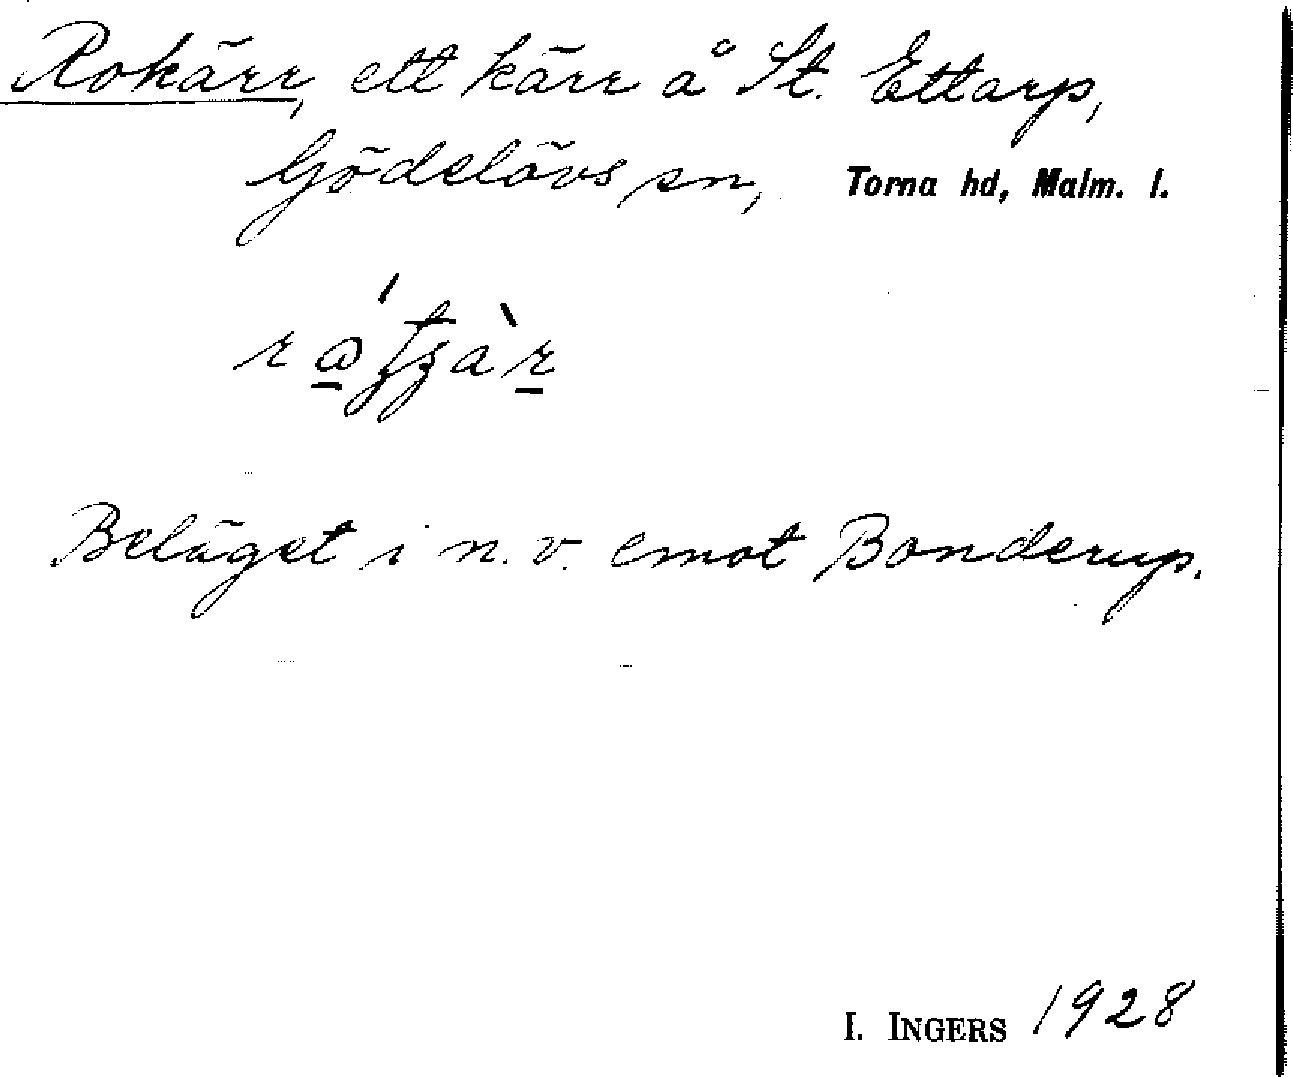 Rokärr, ett kärr å St. Ettarp,
Gödelövs sn, Torna hd, Malm. l.
Beläget i n. v. emot Bonderup.
I. INGERS 1928